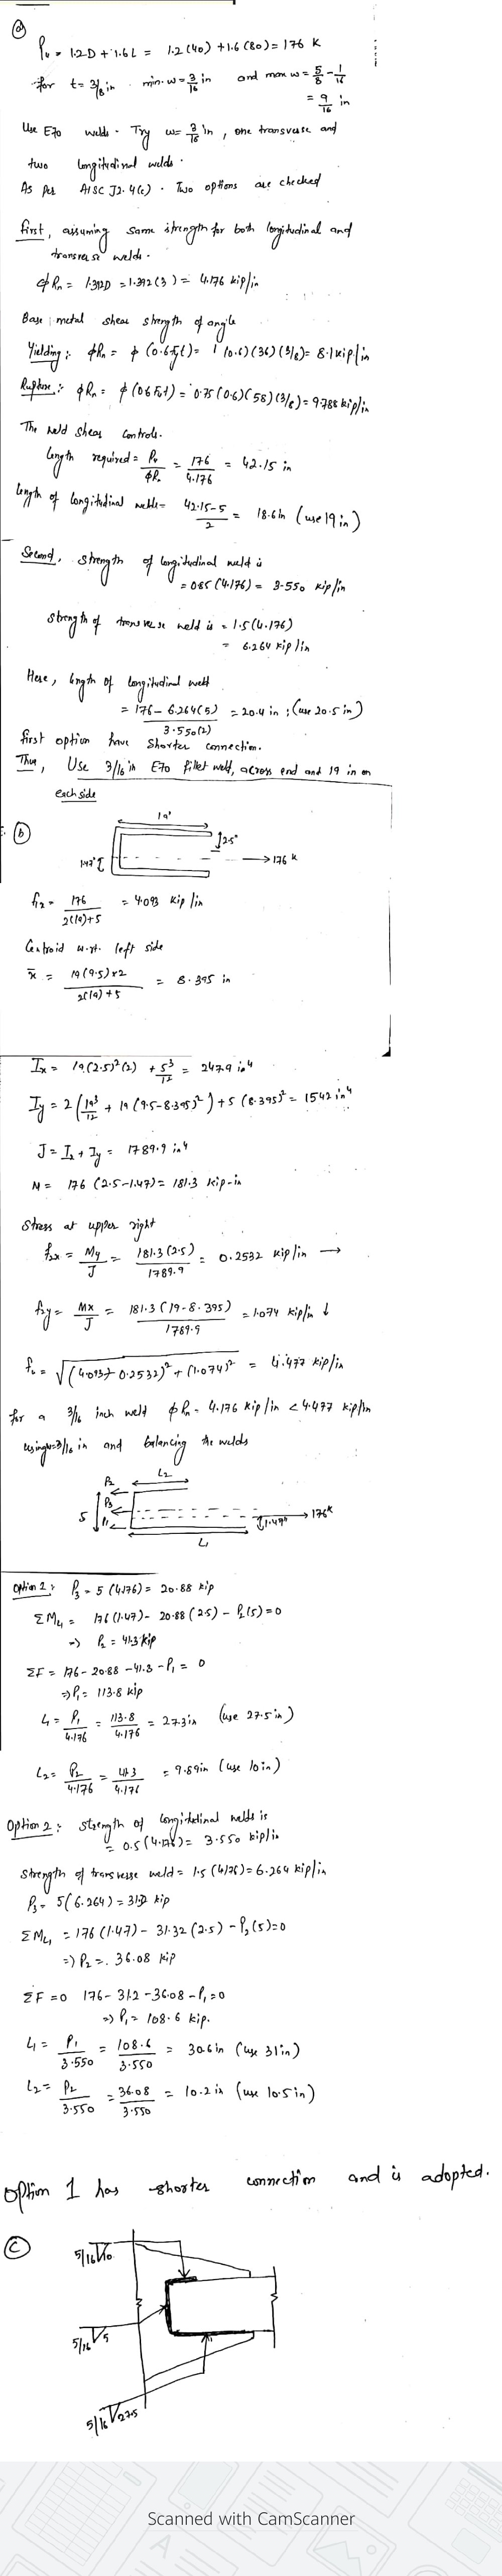 (a)
Pu = 1.2D + 1.6L = 1.2(40) + 1.6(80) = 176 K
for t = 3/8 in min. w = 3/16 in and max w = 5/8 - 1/16
= 9/16 in
Use E70 welds. Try w = 3/16 in, one transverse and
two longitudinal welds.
As per AISC J2.4(c). Two options are checked
first, assuming same strength for both longitudinal and
transverse welds.
ϕRn = 1.392D = 1.392(3) = 4.176 kip/in
Base metal shear strength of angle
Yielding: ϕRn = ϕ(0.6Fyt) = 1(0.6)(36)(3/8) = 8.1 kip/in
Rupture: ϕRn = ϕ(0.6Fut) = 0.75(0.6)(58)(3/8) = 9.788 kip/in
The weld shear controls.
length required = Pu/ϕRn = 176/4.176 = 42.15 in
length of longitudinal welds = (42.15-5)/2 = 18.6 in (use 19 in)
Second, strength of longitudinal weld is
= 0.85(4.176) = 3.550 kip/in
strength of transverse weld is = 1.5(4.176)
= 6.264 kip/in
Here, length of longitudinal weld
= (176 - 6.264(5))/(3.550(2)) = 20.4 in; (use 20.5 in)
first option have shorter connection.
Thus, Use 3/16 in E70 fillet weld, across end and 19 in on
each side
(b)
19"
2.5"
1.47"
→176 K
f1x = 176/(2(19)+5) = 4.093 kip/in
Centroid w.r.t. left side
x̄ = 19(9.5)x2/(2(19)+5) = 8.395 in
Ix = 19(2.5)²(2) + 5³/12 = 247.9 in⁴
Iy = 2(19³/12 + 19(9.5-8.395)²) + 5(8.395)² = 1542 in⁴
J = Ix + Iy = 1789.9 in⁴
M = 176(2.5-1.47) = 181.3 kip-in
Stress at upper right
f2x = My/J = 181.3(2.5)/1789.9 = 0.2532 kip/in →
f2y = Mx/J = 181.3(19-8.395)/1789.9 = 1.074 kip/in ↓
fv = √((4.093+0.2532)² + (1.074)²) = 4.477 kip/in
for a 3/16 inch weld ϕRn = 4.176 kip/in < 4.477 kip/in
using w=3/16 in and balancing the welds
P2 L2
5 P3 →176K
P1 1.47"
L1
Option 2: P3 = 5(4.176) = 20.88 kip
ΣML1 = 176(1.47) - 20.88(2.5) - P2(5) = 0
=> P2 = 41.3 kip
ΣF = 176 - 20.88 - 41.3 - P1 = 0
=> P1 = 113.8 kip
L1 = P1/4.176 = 113.8/4.176 = 27.3 in (use 27.5 in)
L2 = P2/4.176 = 41.3/4.176 = 9.89 in (use 10 in)
Option 2: strength of longitudinal welds is
= 0.5(4.176) = 3.550 kip/in
Strength of transverse weld = 1.5(4.176) = 6.264 kip/in
P3 = 5(6.264) = 31.32 kip
ΣML1 = 176(1.47) - 31.32(2.5) - P2(5) = 0
=> P2 = 36.08 kip
ΣF = 0 176 - 31.2 - 36.08 - P1 = 0
=> P1 = 108.6 kip.
L1 = P1/3.550 = 108.6/3.550 = 30.6 in (use 31 in)
L2 = P2/3.550 = 36.08/3.550 = 10.2 in (use 10.5 in)
Option 1 has shorter connection and is adopted.
(c)
5/16 10
5/16 5
5/16 27.5
Scanned with CamScanner